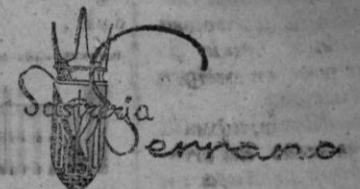 Sastrería
Serrano